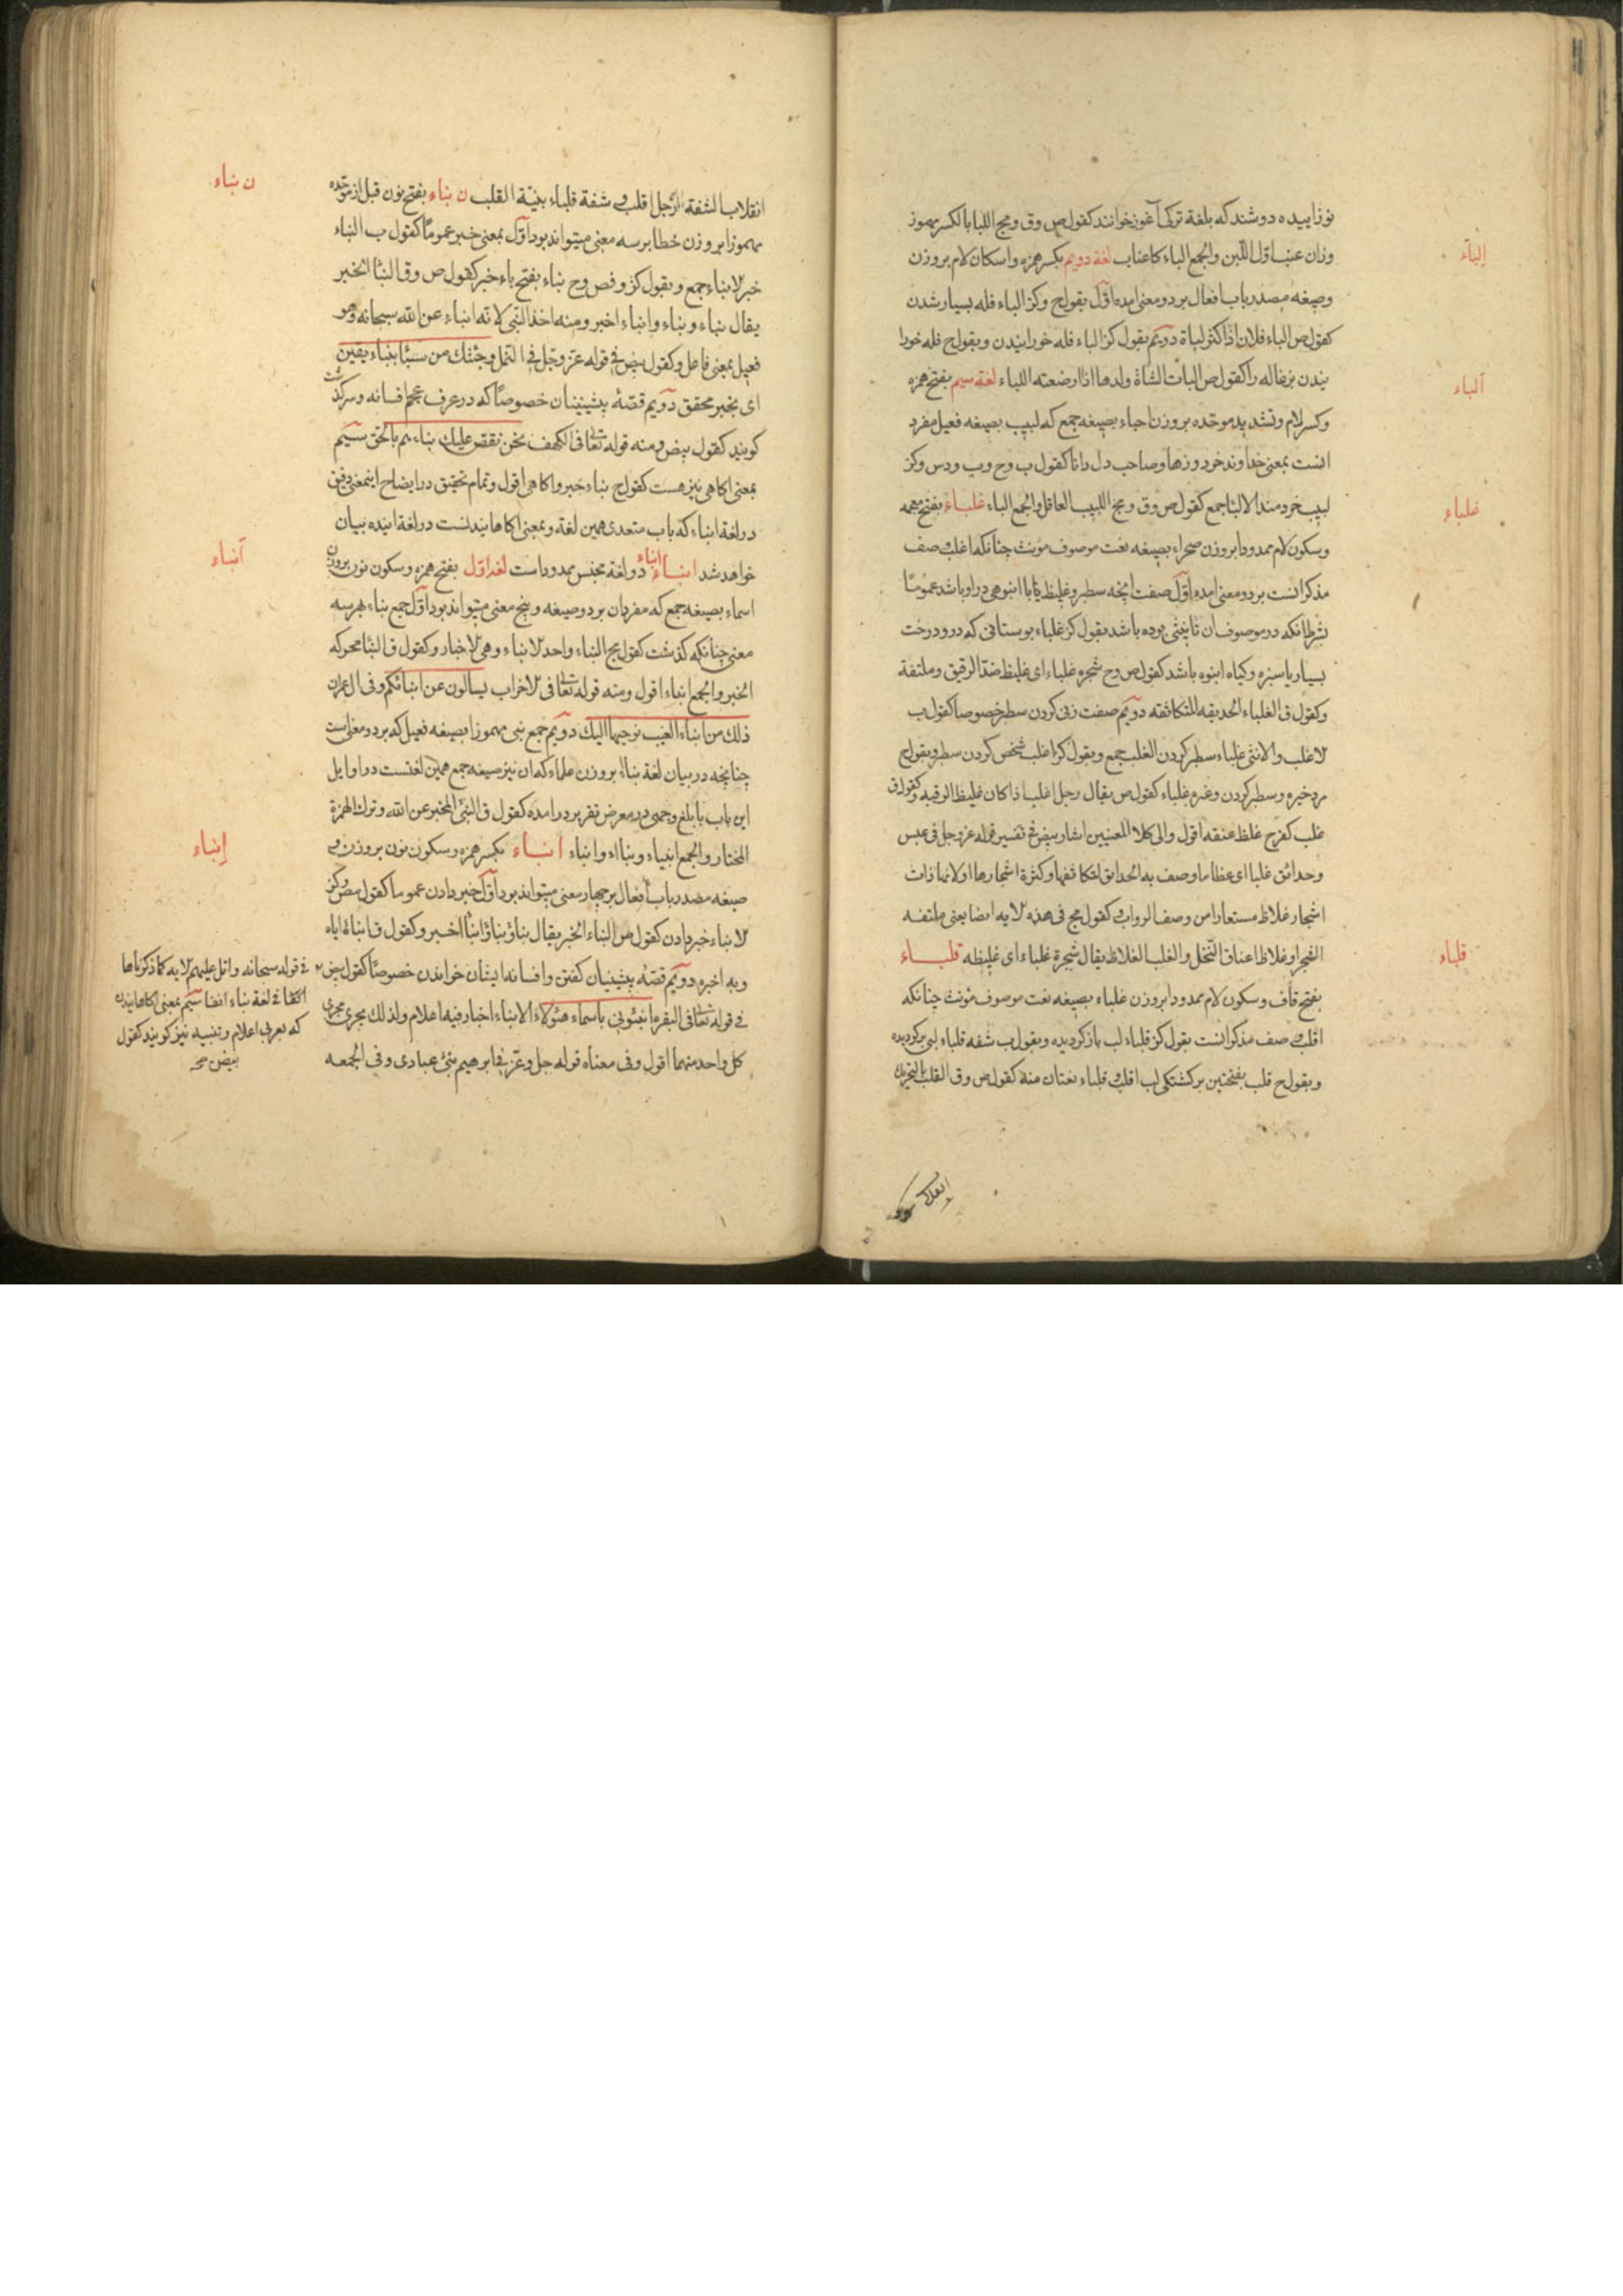 نوزاییده دوشند که بلغة ترکی آغوز خوانند کقول ص وق ومج اللبا بالکسر مهموز
إلباء
وزان عنب اوّل اللّبن والجمع الباء کاعناب لغة دویم بکسر همزه واسکان لام بروزن
وصیغه مصدر باب افعال بر دو معنی امده اوّل بقول ح وکز الباء فله بسیار شدن
کقول ص الباء فلان اذا کثر لباة دویّم بقول کز الباء فله خورانیدن وبقول ح فله خورا
نیدن بزغاله را کقول ص البأت الشاة ولدها اذا ارضعته اللباء لغة سیم بفتح همزه
ألباء
وکسر لام وتشدید موحّده بروزن احباء بصیغه جمع که لبیب بصیغه فعیل مفرد
انست بمعنی خداوند خرد وزها وصاحب دل دانا کقول ب وح وب ودس وکز
لبیب خردمند الالبّا جمع کقول ص وق ومج اللبیب العاقل والجمع الباء غلباء بفتح معجمه
غلباء
وسکون لام ممدودا بروزن صحراء بصیغه نعت موصوف مونث چنانکه اغلب وصف
مذکر انست بر دو معنی امده اوّل صفت انچه سطبر وغلیظ یا با انبوهی در او باشد عمومًا
بشرط انکه در موصوف ان تانیثی بوده باشد بقول کز غلباء بوستانی که در و درخت
بسیار یا سبزه وکیاه انبوه باشد کقول ص وح شجره غلباء ای غلیظ ضدّ الرقیق وملتفة
وکقول ق الغلباء الحدیقه المتکاثفه دویّم صفت زنی کردن سطبر خصوصا کقول ب
لاغلب والانثی غلباء سطبر کردن الغلب جمع وبقول کز اغلب شخص کردن سطبر وبقول ح
مرد خیره وسطبر کردن وغره غلباء کقول ص یقال رجل اغلب اذا کان غلیظ الرقبه وکقول ق
غلب کفرح غلظ عنقه اقول والی کلا المعنیین اشار بیض فی تفسیر قوله عز وجل فی عبس
وحدائق غلبا ای عظاما وصف به الحدایق لتکاثفها وکثرة اشجارها او لانها ذات
اشجار غلاظ مستعار من وصف الرواب وکقول مج فی هذه لایه ایضا یعنی ملتفه
الشجر او غلاظ اعناق النخل والغلب الغلاظ یقال شجرة غلباء ای غلیظه قلباء
قلباء
بفتح قاف وسکون لام ممدودا بروزن غلباء بصیغه نعت موصوف مؤنث چنانکه
اقلب وصف مذکر انست بقول کز قلباء لب باز کردیده وبقول ب شفه قلباء لبی برکردیده
وبقول ح قلب بفتحتین برکشتکی لب اقلب و قلباء نعتان منه کقول ص وق القلب بالتحریک
انقلاب
انقلاب الشفه الرّجل اقلب و شفة قلباء بیّنة القلب ن نباء بفتح نون قبل از موحّده
ن نباء
مهموزا بروزن خطا بر سه معنی میتواند بود اوّل بمعنی خبر عمومًا کقول ب النباء
خبر لانباء جمع وبقول کز وفص وح نباء بفتح باء خبر کقول ص وق النبأ الخبر
یقال نباء ونباء وانباء اخبر ومنه اخذ النبی لانّه انباء عن الله سبحانه وهو
فعیل بمعنی فاعل وکقول بیض فی قوله عزّ وجلّ فی النمل وجئتك من سبأ بنباء یقین
ای بخبر محقق دویم قصّهٔ پیشینیان خصوصًا که در عرف عجم افسانه وسرکذشت
کویند کقول بیض ومنه قوله تعا فی الکهف نحن نقص علیك نباءهم بالحق سیّم
بمعنی اکاهی نیز هست کقول ح نباء خبر واکاهی اقول وتمام تحقیق در ایضاح اینمعنی دقیق
در لغة انباء که باب متعدی همین لغة وبمعنی اکاهانیدنست در لغة اینده بیان
خواهد شد انباء انباء دو لغة مجنس ممدود است لغة اوّل بفتح همزه وسکون نون بروزن
أنباء
اسماء بصیغه جمع که مفردان بر دو صیغه وپنج معنی میتواند بود اوّل جمع نباء بهر سه
معنی چنانکه کذشت کقول مج النباء واحد لانباء وهی لاخبار وکقول ق النبأ محرکه
الخبر والجمع انباء اقول ومنه قوله تعا فی لاحزاب یسألون عن انبائکم وفی ال عمران
ذلك من انباء الغیب نوحیها الیك دویّم جمع نبی مهموزا بصیغه فعیل که بر دو معنی است
چنانچه در بیان لغة نبآء بروزن علماء که ان نیز صیغه جمع همین لغتست در اوایل
این باب بابلغ وجهی در معرض تقریر در امده کقول ق النبئ المخبر عن الله وترك الهمزة
المختار والجمع انبیاء ونبااء وانباء انباء بکسر همزه وسکون نون بروزن و
إنباء
صیغه مصدر باب افعال بر چهار معنی میتواند بود اوّل خبر دادن عموما کقول مص وکز
لانباء خبر دادن کقول ص النباء الخبر یقال نباؤ نباؤ انبأ اخبر وکقول ق انباهٔ ایاه
وبه اخبره دویّم قصّهٔ پیشینیان کفتن وافسانه ایشان خواندن خصوصًا کقول بیض
فی قوله سبحانه واتل علیهم لایه کما ذکرناها
انفا فی لغة نباء ایضا سیّم بمعنی اکاهانیدن
که بعربی اعلام وتنبیه نیز کویند کقول
بیض صح
فی قوله تعا فی البقره انبئونی باسماء هؤلاء الانباء اخبار فیه اعلام ولذلك یجری مجری
کل واحد منهما اقول وفی معناه قوله جل وعزّ فی ابرهیم نبئ عبادی وفی الجمعه